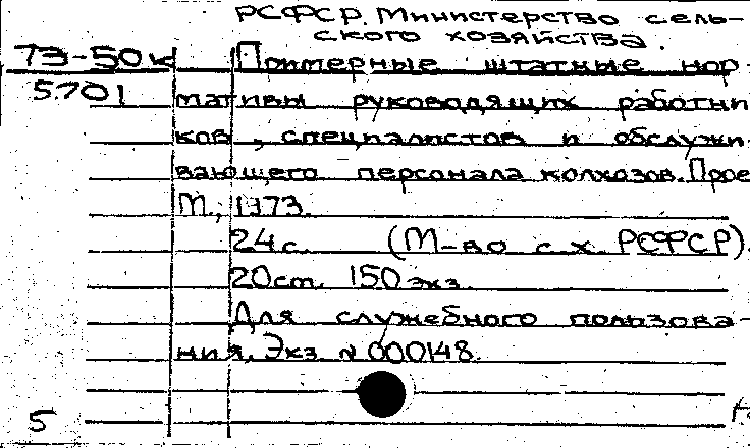 РСФСР. Министерство сель-
ского хозяйства.
73-50к Примерные штатные нор-
5701 мативы руководящих работни
ков, специалистов и обслужи
вающего персонала колхозов. Прое
М., 1973.
24с. (М-во с.х. РСФСР).
20см. 150 экз.
Для служебного пользова-
ния. Экз. № 000148.
5